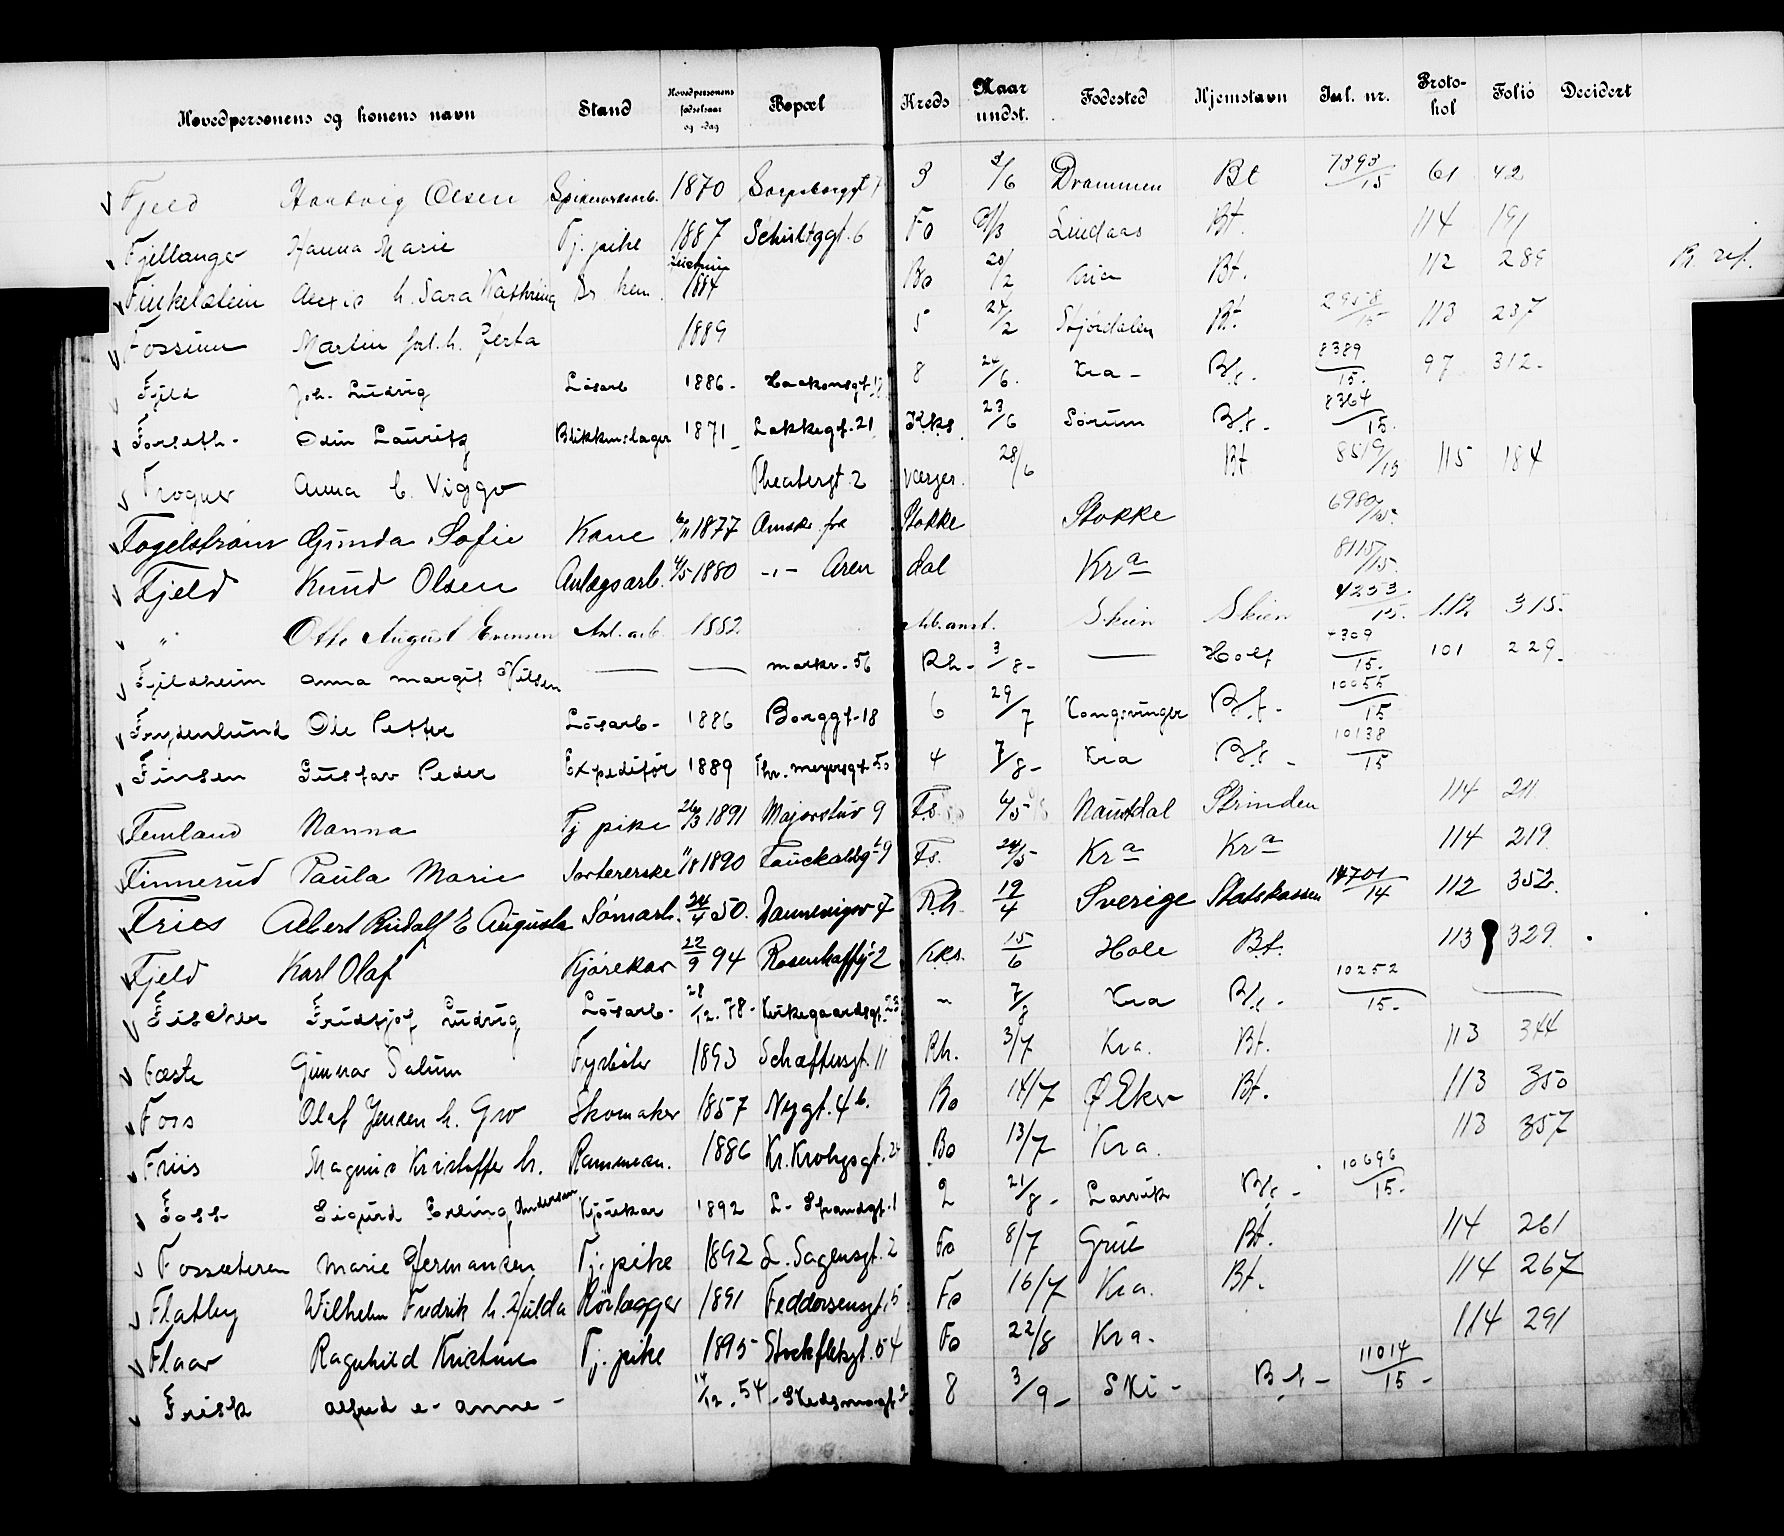 Hovedpersonens og konens navn Stand Hovedpersonens fødselsaar og -dag Bopæl Kreds Naar undst. Fødested Hjemstavn Jul. nr. Proto-kol Folio Decidert
Fjeld Hartvig Olsen 1870 Sarpsborggt 7 3 3/6 Drammen Bt 7393/15 61 42
Fjellanger Hanna Marie Tj. pike 1887 Schultzgt. 6 Fo Lindaas Bt. 114 191
Finkelstein h. Sara Kathrina 1884 Bo 20/2 Kria Bt. 112 286 B. ref.
Fossum Martin frl. h. Gerta 1889 5 27/2 Stjørdalen Bt. 2958/15 113 237
Fjeld Joh. Ludvig Løsarb 1886 - Haakonsgt. 8 24/6. Kra - Bt. - 8389/15. 97 312-
Forseth - Odin Lauritz Blikkenslager 1871 - Lakkegt. 21 Kks. 23/6 Sørum Bt. - 8364/15.
Frogner Anna C. Viggo Theatergt. 2 Værger. 28/6 Bt 8519/15 115 184
Fogelstrøm Gunda Sofie Kone 1877 Ønske fra Stokke Stokke 6980/15
Fjeld Knud Olsen Anlægsarb. 4/5 1880 -"- Aren dal Kra 8115/15.
" Otto August Evensen Anl. arb 1882. Arb. anst. Skien Skien 4253/15. 112 315.
Fjeldheim Anna Margit Nilsen — — Markv. 56 Rh- 3/8- — Holt 309/15. 101 229.
Frydenlund Ole Petter Løsarb- 1886 Borggt-18 6 29/7 Kongsvinger Bt.- 10055/15
Finsen Gustav Peder Expeditør 1889 Thv. Meyersgt 50 4 7/8- Kra Bt. - 10138/15
Femland Nanna Tj pike 26/3 1891 Majorstuv 9 Fs. 4/5 Naustdal Strinden 114 211
Finnerud Paula Marie Sortererske 1890 Fauchaldsgt 9 Fs. 24/5 Kra Kra 114 219.
Fries Albert Rudolf E Augusta Sømarb. 24/4 50. Dannevigsv 7 Rh. 19/4 Sverige Statskassen 14701/14 112 352.
Fjeld Karl Olaf Kjørekar 22/9 94 Rosenhoffg 2 Kks. 15/6 Hole Bt. 113 329.
Fischer Fridtjof Ludvig Løsarb- 28/12. 78- Kirkegaardsgt. 23 " 7/8 Kra Bt.- 10252/15.
Fæste Gunnar Salum Fyrbøter 1893 Schæffersgt. 11 Rh. 3/7 Kra. Bt. 113 344
Foss Olaf Jensen h. Gro Skomaker 1857 Nygt. 4b. Bo 14/7 Ø Eker Bt. 113 350
Friis Magnus Kristoffer h. 1886 Kr. Krohgsgt. 24 Bo 13/7 Kra. 113 357
Foss- Sigurd Erling Andersen Kjørekar 1892 L- Strandgt. 1 2 21/8- Larvik Bt.- 10696/15.
Fossæteren Marie Hermansen Tj. pike 1892 L. Sagensgt. 2 Fo 8/7 Grue Bt. 114 261
Flatby Wilhelm Fredrik h. Hulda Rørlægger 1891 Feddersensgt. 5 Fo 16/7 Kra. Bt. 114 267
Flaar Ragnhild Kristine Tj. pike 1895 Stockfletsgt. 54 Fo 22/8 Kra. 114 291
Frisk Alfred e- Anne - 14/12. 54 - Skedsmogt. 2 8 3/9- Ski - Bt- 11014/15-